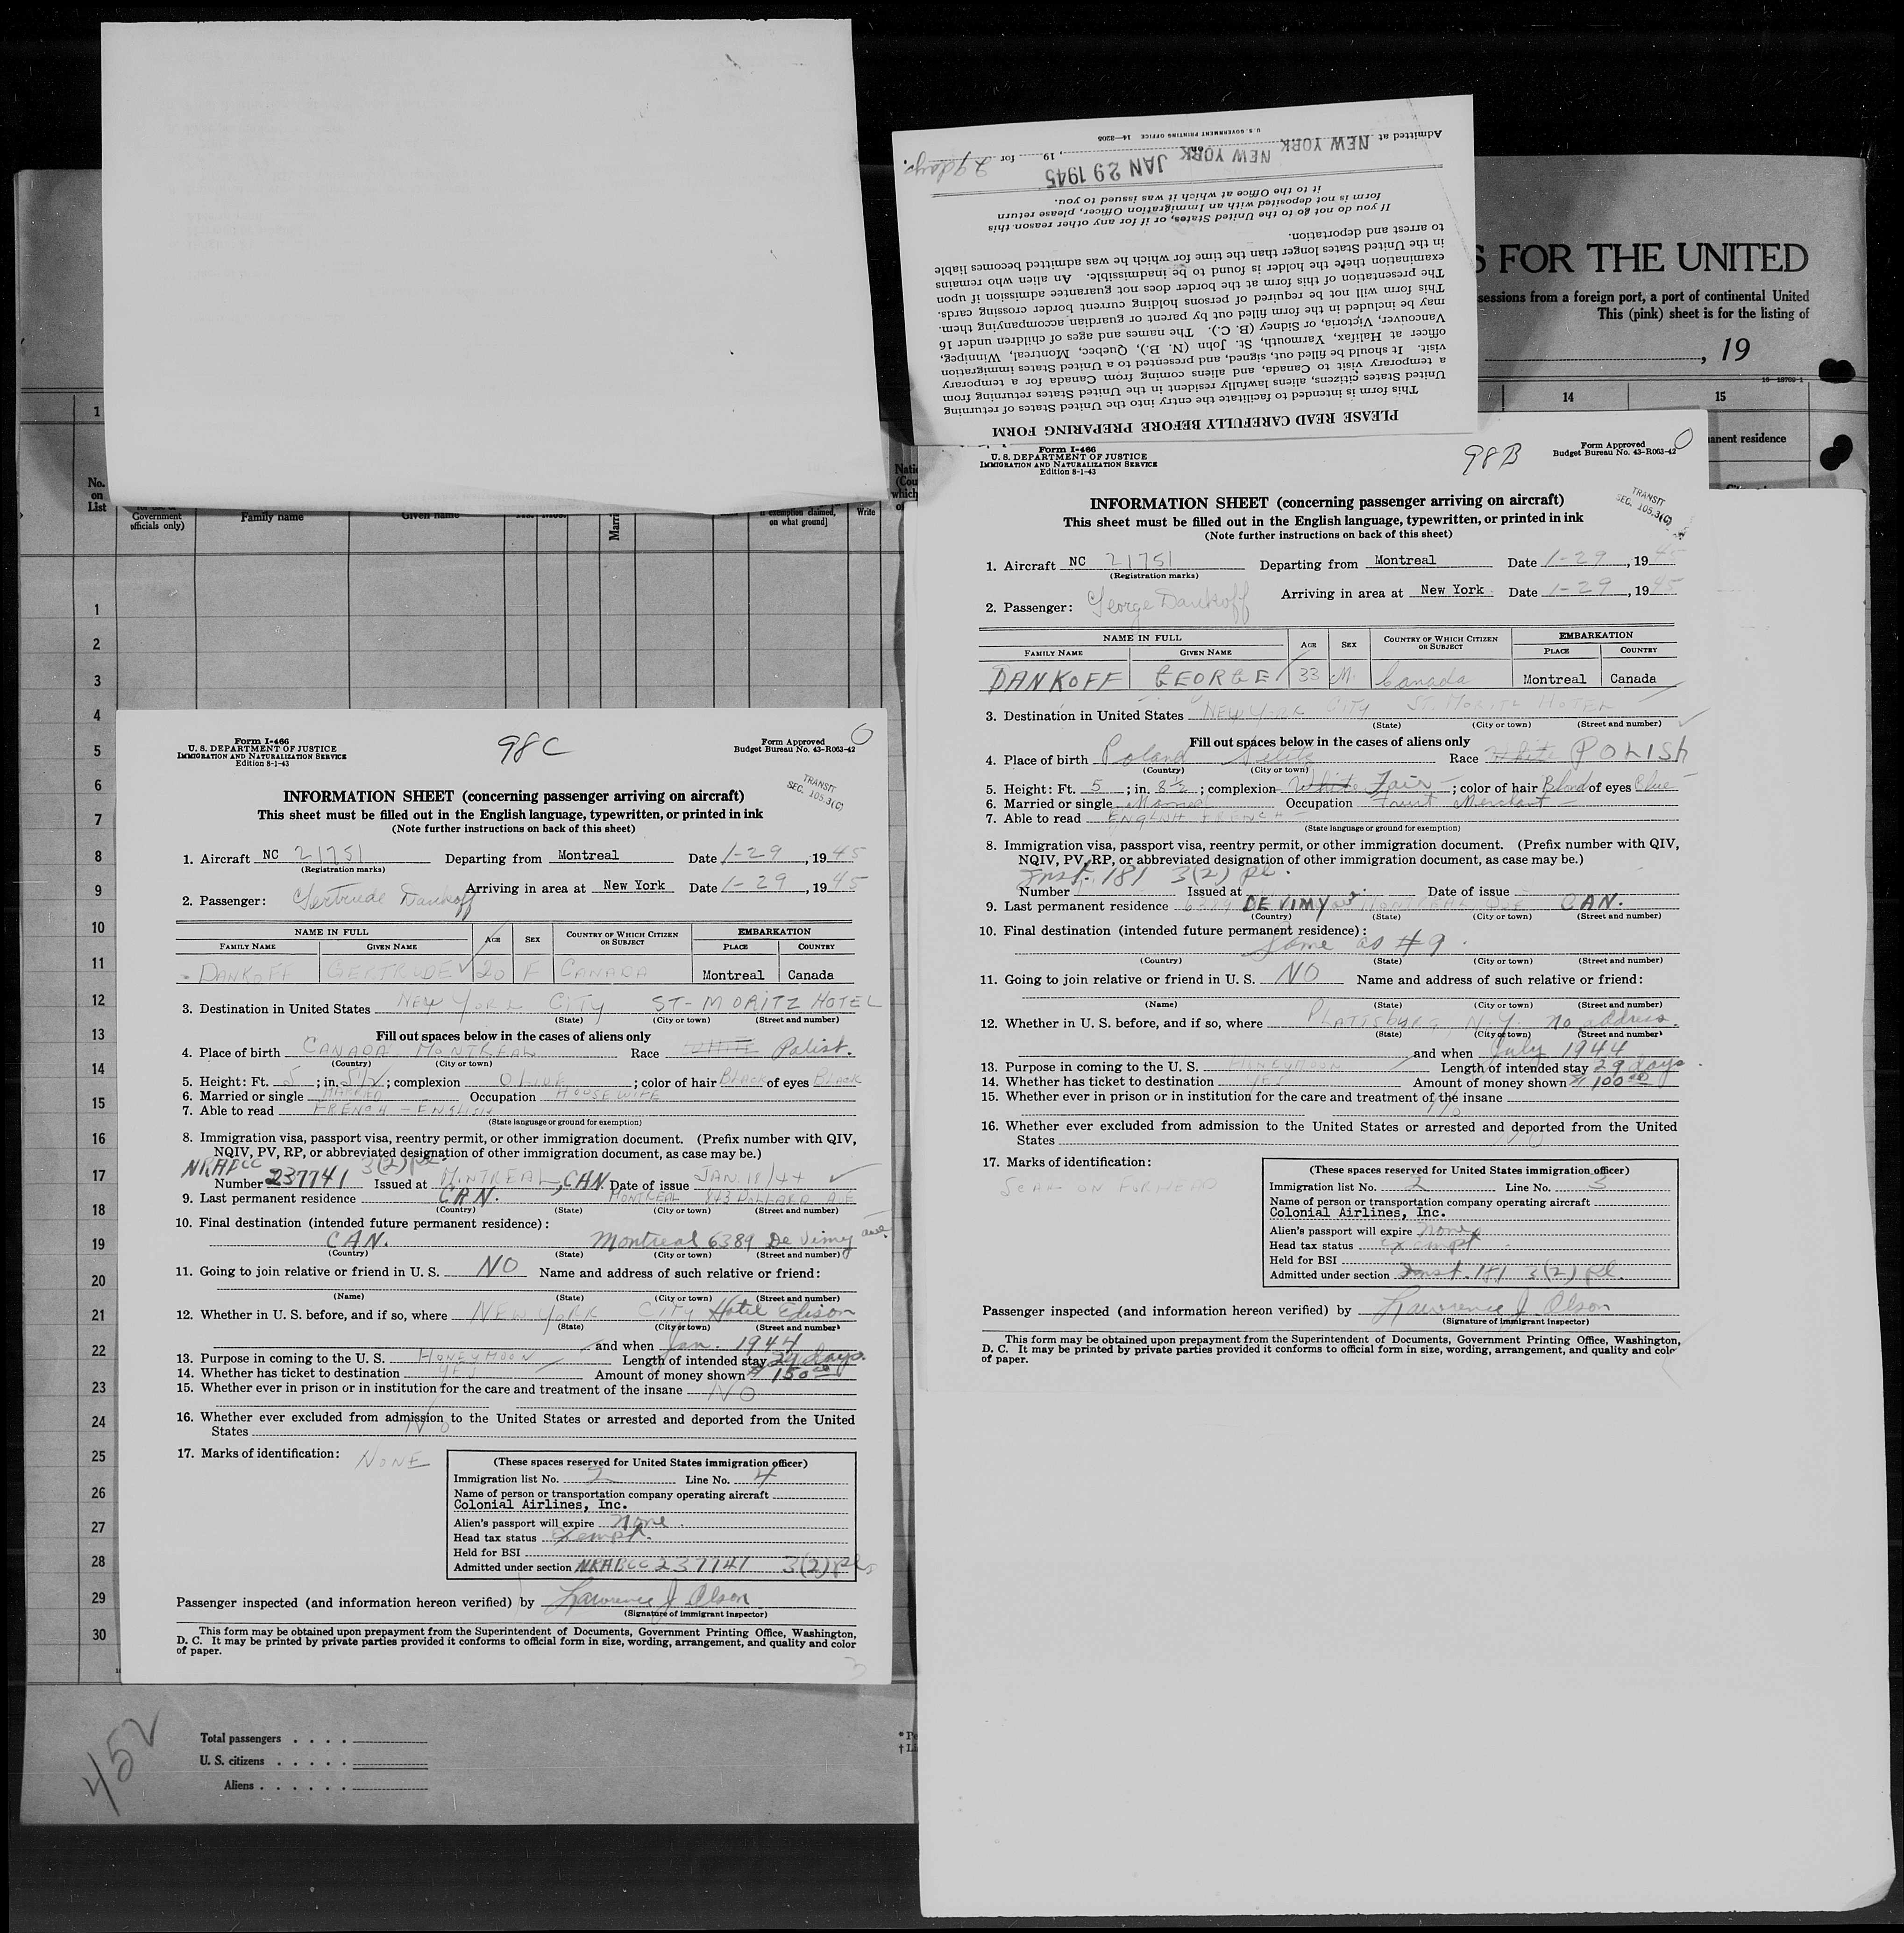 PLEASE READ CAREFULLY BEFORE PREPARING FORM
This form is intended to facilitate the entry into the United States of returning
United States citizens, aliens lawfully resident in the United States returning from
a temporary visit to Canada, and aliens coming from Canada for a temporary
visit. It should be filled out, signed, and presented to a United States immigration
officer at Halifax, Yarmouth, St. John (N. B.), Quebec, Montreal, Winnipeg,
Vancouver, Victoria, or Sidney (B. C.). The names and ages of children under 16
may be included in the form filled out by parent or guardian accompanying them.
This form will not be required of persons holding current border crossing cards.
The presentation of this form at the border does not guarantee admission if upon
examination there the holder is found to be inadmissible. An alien who remains
in the United States longer than the time for which he was admitted becomes liable
to arrest and deportation.
If you do not go to the United States, or if for any other reason this
form is not deposited with an Immigration Officer, please return
it to the Office at which it was issued to you.
Admitted at NEW YORK NEW YORK on JAN 29 1945, 19 for 29 days.
U. S. GOVERNMENT PRINTING OFFICE 14—3208
S FOR THE UNITED
sessions from a foreign port, a port of continental United
This (pink) sheet is for the listing of
, 19
14 15
anent residence
1
No.
on
List
Government
officials only)
Family name
Given name
Marri
exemption claimed,
on what ground]
Write
Natio
(Cou
which
1
2
3
4
5
6
7
8
9
10
11
12
13
14
15
16
17
18
19
20
21
22
23
24
25
26
27
28
29
30
Form I-466
U. S. DEPARTMENT OF JUSTICE
IMMIGRATION AND NATURALIZATION SERVICE
Edition 8-1-43
98C
Form Approved
Budget Bureau No. 43-R063-42
TRANSIT
SEC. 105.3(C)
INFORMATION SHEET (concerning passenger arriving on aircraft)
This sheet must be filled out in the English language, typewritten, or printed in ink
(Note further instructions on back of this sheet)
1. Aircraft NC 21751 Departing from Montreal Date 1-29, 1945
(Registration marks)
Arriving in area at New York Date 1-29, 1945
2. Passenger: Gertrude Dankoff
NAME IN FULL AGE SEX COUNTRY OF WHICH CITIZEN OR SUBJECT EMBARKATION
FAMILY NAME GIVEN NAME PLACE COUNTRY
DANKOFF GERTRUDE 20 F CANADA Montreal Canada
3. Destination in United States NEW YORK CITY ST-MORITZ HOTEL
(State) (City or town) (Street and number)
Fill out spaces below in the cases of aliens only
4. Place of birth CANADA MONTREAL Race WHITE Polish.
(Country) (City or town)
5. Height: Ft. 5; in. 5 1/2; complexion OLIVE; color of hair BLACK of eyes BLACK
6. Married or single MARRIED Occupation HOUSEWIFE
7. Able to read FRENCH - ENGLISH
(State language or ground for exemption)
8. Immigration visa, passport visa, reentry permit, or other immigration document. (Prefix number with QIV,
NQIV, PV, RP, or abbreviated designation of other immigration document, as case may be.)
NRABCC 3(2) pl.
Number 237741 Issued at MONTREAL, CAN. Date of issue JAN. 18/44
9. Last permanent residence CAN. MONTREAL 843 DOLLARD AVE
(Country) (State) (City or town) (Street and number)
10. Final destination (intended future permanent residence):
CAN. Montreal 6389 De Vimy ave.
(Country) (State) (City or town) (Street and number)
11. Going to join relative or friend in U. S. NO Name and address of such relative or friend:
(Name) (State) (City or town) (Street and number)
12. Whether in U. S. before, and if so, where NEW YORK CITY Hotel Edison
(State) (City or town) (Street and number)
and when Jan. 1944
13. Purpose in coming to the U. S. HONEYMOON Length of intended stay 29 days.
14. Whether has ticket to destination YES Amount of money shown $150.00
15. Whether ever in prison or in institution for the care and treatment of the insane NO
16. Whether ever excluded from admission to the United States or arrested and deported from the United
States NO
17. Marks of identification: NONE
(These spaces reserved for United States immigration officer)
Immigration list No. 2 Line No. 4
Name of person or transportation company operating aircraft
Colonial Airlines, Inc.
Alien's passport will expire none.
Head tax status Exempt.
Held for BSI
Admitted under section NRABCC 237741 3(2) pl.
Passenger inspected (and information hereon verified) by Lawrence J. Olson
(Signature of immigrant inspector)
This form may be obtained upon prepayment from the Superintendent of Documents, Government Printing Office, Washington,
D. C. It may be printed by private parties provided it conforms to official form in size, wording, arrangement, and quality and color
of paper.
452
Total passengers
U. S. citizens
Aliens
Form I-466
U. S. DEPARTMENT OF JUSTICE
IMMIGRATION AND NATURALIZATION SERVICE
Edition 8-1-43
98B
Form Approved
Budget Bureau No. 43-R063-42
TRANSIT
SEC. 105.3(C)
INFORMATION SHEET (concerning passenger arriving on aircraft)
This sheet must be filled out in the English language, typewritten, or printed in ink
(Note further instructions on back of this sheet)
1. Aircraft NC 21751 Departing from Montreal Date 1-29, 1945
(Registration marks)
Arriving in area at New York Date 1-29, 1945
2. Passenger: George Dankoff
NAME IN FULL AGE SEX COUNTRY OF WHICH CITIZEN OR SUBJECT EMBARKATION
FAMILY NAME GIVEN NAME PLACE COUNTRY
DANKOFF GEORGE 33 M. Canada Montreal Canada
3. Destination in United States NEW YORK CITY ST. MORITZ HOTEL
(State) (City or town) (Street and number)
Fill out spaces below in the cases of aliens only
4. Place of birth Poland Race White POLISH
(Country) (City or town)
5. Height: Ft. 5; in. 8 1/2; complexion White Fair; color of hair Blond of eyes Blue
6. Married or single Married Occupation Fruit Merchant
7. Able to read ENGLISH FRENCH
(State language or ground for exemption)
8. Immigration visa, passport visa, reentry permit, or other immigration document. (Prefix number with QIV,
NQIV, PV, RP, or abbreviated designation of other immigration document, as case may be.)
Inst. 181 3(2) pl.
Number Issued at Date of issue
9. Last permanent residence 6389 DE VIMY ave MONTREAL QUE CAN.
(Country) (State) (City or town) (Street and number)
10. Final destination (intended future permanent residence):
Same as #9.
(Country) (State) (City or town) (Street and number)
11. Going to join relative or friend in U. S. NO Name and address of such relative or friend:
(Name) (State) (City or town) (Street and number)
12. Whether in U. S. before, and if so, where PLATTSBURG, N.Y. no address.
(State) (City or town) (Street and number)
and when July 1944
13. Purpose in coming to the U. S. HONEYMOON Length of intended stay 29 days.
14. Whether has ticket to destination YES Amount of money shown $100.00
15. Whether ever in prison or in institution for the care and treatment of the insane
No
16. Whether ever excluded from admission to the United States or arrested and deported from the United
States NO
17. Marks of identification:
SCAR ON FORHEAD
(These spaces reserved for United States immigration officer)
Immigration list No. 2 Line No. 3
Name of person or transportation company operating aircraft
Colonial Airlines, Inc.
Alien's passport will expire none
Head tax status Exempt
Held for BSI
Admitted under section Inst. 181 3(2) pl.
Passenger inspected (and information hereon verified) by Lawrence J. Olson
(Signature of immigrant inspector)
This form may be obtained upon prepayment from the Superintendent of Documents, Government Printing Office, Washington,
D. C. It may be printed by private parties provided it conforms to official form in size, wording, arrangement, and quality and color
of paper.